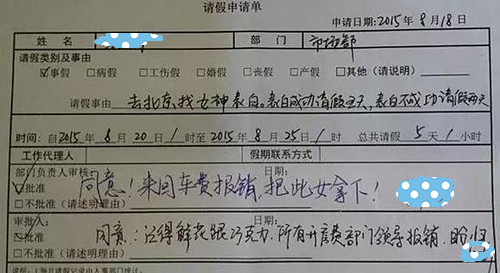 请假申请单
申请日期:2015年8月18日
姓名 部门 市场部
请假类别及事由
☑事假 □病假 □工伤假 □婚假 □丧假 □产假 □其他（请说明）
请假事由 去北京找女神表白。表白成功请假五天，表白不成功请假两天
时间：自2015年8月20日1时至2015年8月25日1时 总共请假5天1小时
工作代理人 假期联系方式
部门负责人审核： 日期：
☑批准 同意！来回车费报销，把此女拿下！
□不批准（请述明理由）
审批人： 日期：
☑批准 同意：记得鲜花跟巧克力，所有开房费部门领导报销，盼归
□不批准（请述明理由）